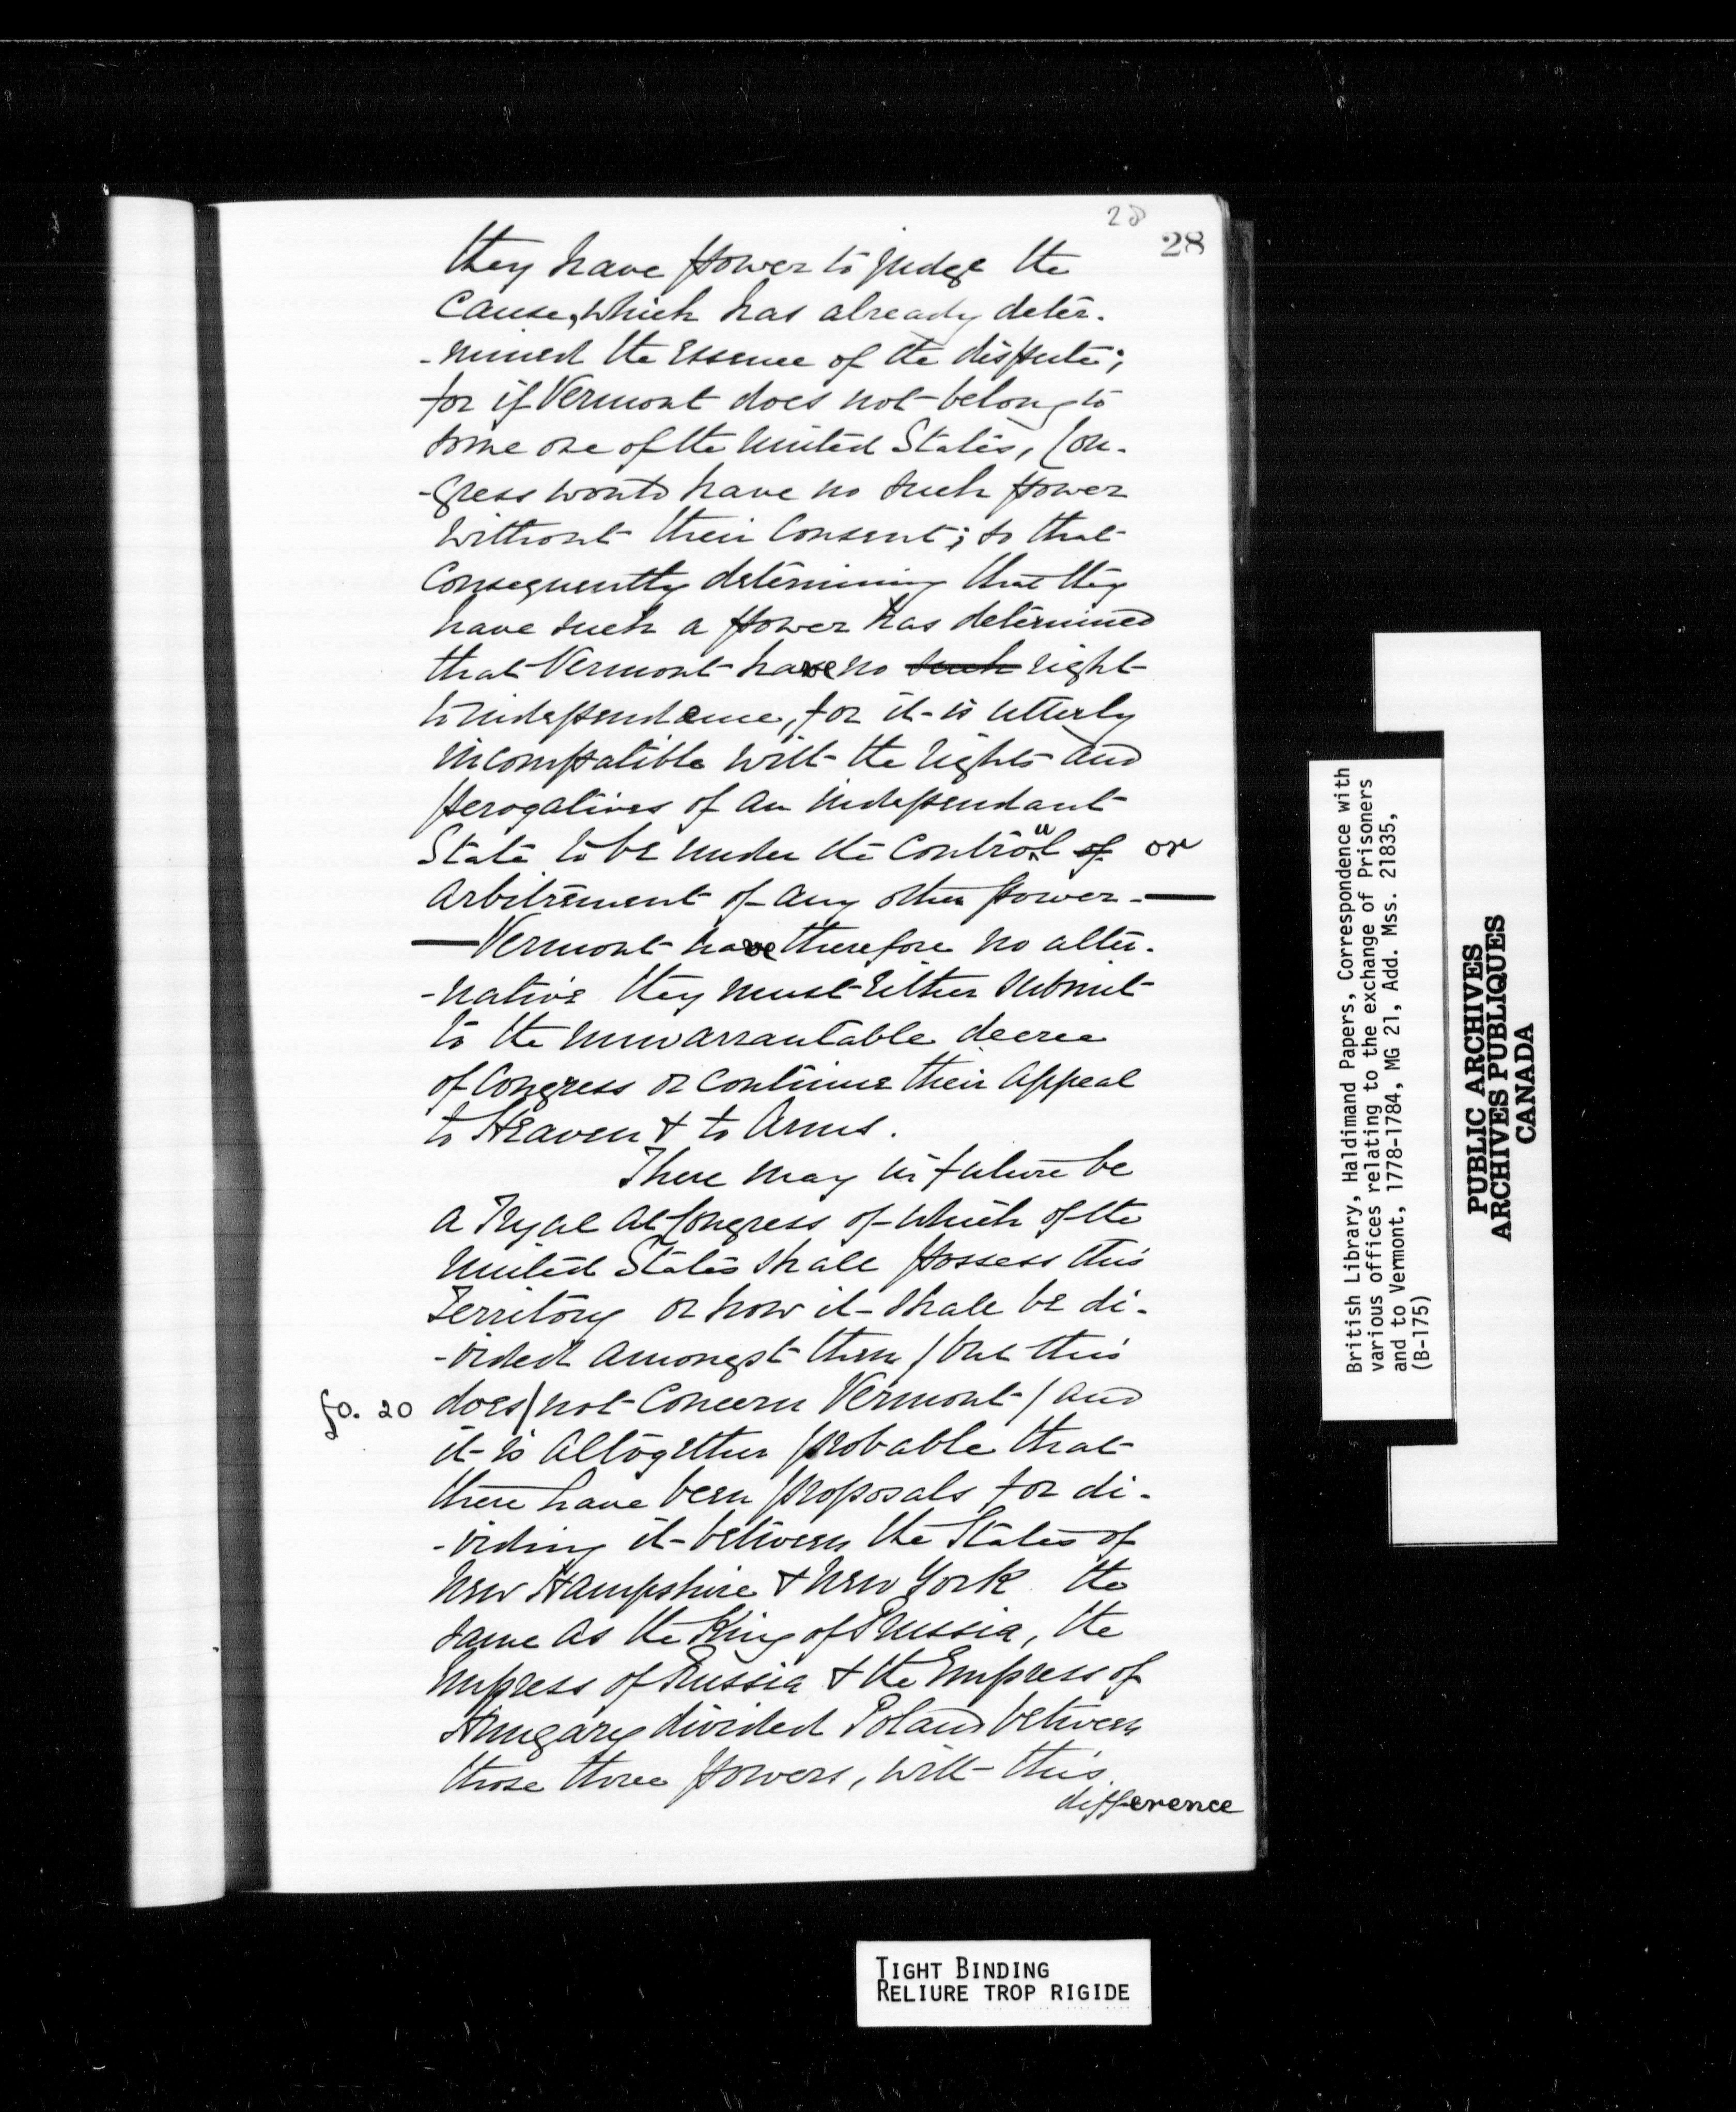 28
28
they have power to judge the
Cause, which has already deter-
-mined the essence of the dispute;
for if Vermont does not belong to
some one of the United States, Con-
-gress would have no such power
without their Consent; so that
Consequently determining that they
have such a power has determined
that Vermont have no such right
to independence, for it is utterly
incompatible with the rights and
perogatives of an independant
State to be under the Controul of or
arbitrement of any other power.—
—Vermont have therefore no alter-
-native they must either submit
to the unwarrantable decree
of Congress or continue their appeal
to Heaven & to Arms.
There may in future be
a Tryal at Congress of which of the
United States shall possess this
Territory or how it shall be di-
-vided amongst them / but this
fo. 20 does | not concern Vermont / and
it is altogether probable that
there have been proposals for di-
-viding it between the States of
New Hampshire & New York the
same as the King of Prussia, the
Empress of Russia & the Empress of
Hungary divided Poland between
those three powers, with this
difference
British Library, Haldimand Papers, Correspondence with
various offices relating to the exchange of Prisoners
and to Vermont, 1778-1784, MG 21, Add. Mss. 21835,
(B-175)
PUBLIC ARCHIVES
ARCHIVES PUBLIQUES
CANADA
TIGHT BINDING
RELIURE TROP RIGIDE